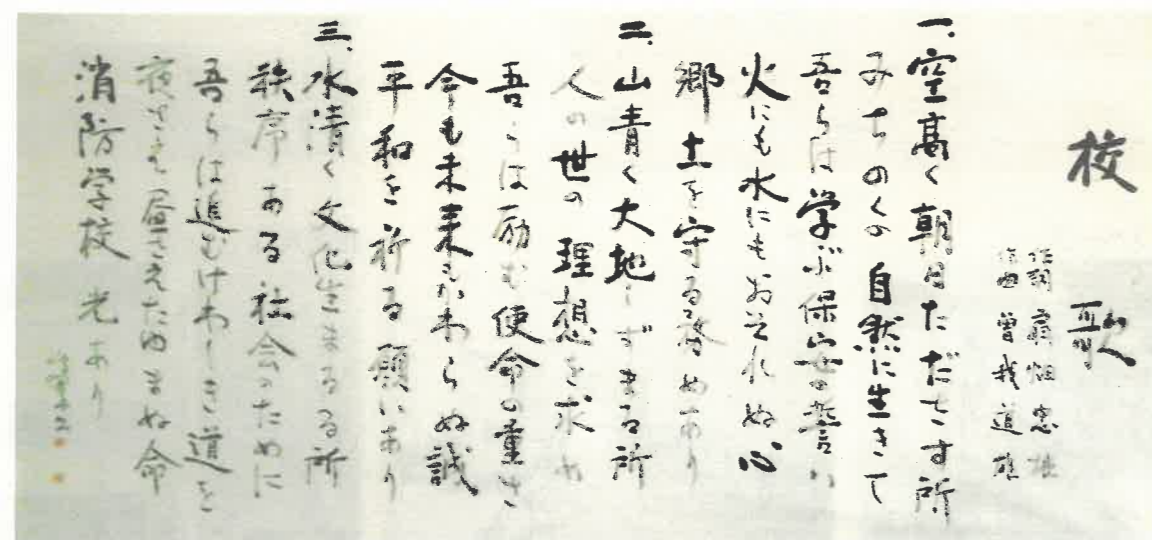 校歌
作詞 畑 忠雄
作曲 曽我道雄
一、空高く朝日たださす所
みちのくの自然に生きて
吾らは学ぶ保安の誓い
火にも水にもおそれぬ心
郷土を守る務めあり
二、山青く大地しずまる所
人の世の理想を求め
吾らは励む使命の重さ
今も未来もかわらぬ誠
平和を祈る願いあり
三、水清く文化生まるる所
秩序ある社会のために
吾らは進むけわしき道を
夜さえも昼さえたゆまぬ命
消防学校 光あり